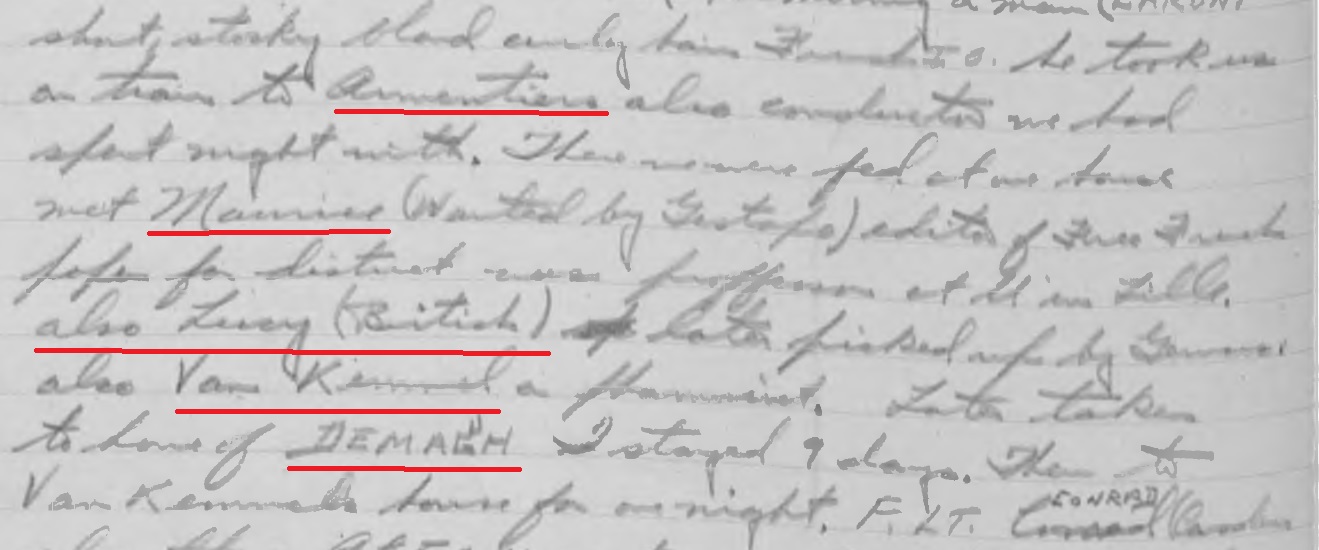 a man (
short, stocky blond curly hair French I O. he took us
on train to Armentiers also conductor we had
spent night with. There we were fed at one house
met Maurice (Wanted by Gestapo) editor of Free French
paper for district was proffessor at U in Lille.
also Lucy (British) later picked up by Germans
also Van Kemmel a pharmacist. Later taken
to home of DEMAGH I stayed 9 days. Then to
Van Kemmels house for one night. F. LT. CONRAD